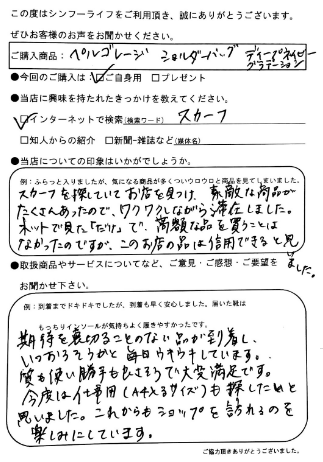 この度はシンフーライフをご利用頂き、誠にありがとうございます。
ぜひお客様のお声をお聞かせください。
ご購入商品: ペルゴレージ ショルダーバッグ ディープネイビーグラデーション
●今回のご購入は ☑ご自身用 □プレゼント
●当店に興味を持たれたきっかけを教えてください。
☑インターネットで検索(検索ワード) スカーフ
□知人からの紹介 □新聞・雑誌など(媒体名)
●当店についての印象はいかがでしょうか。
例:ふらっと入りましたが、気になる商品が多くついウロウロと商品を見てしまいました。
スカーフを探していてお店を見つけ、素敵な商品が
たくさんあったので、ワクワクしながら滞在しました。
ネットで見た「だけ」で、高額な品を買うことは
なかったのですが、このお店の品は信用できると思いました。
●取扱商品やサービスについてなど、ご意見・ご感想・ご要望を
お聞かせ下さい。
例:到着までドキドキでしたが、到着も早く安心しました。届いた靴は
もっちりインソールが気持ちよく履きやすかったです。
期待を裏切ることのない品が到着し、
いつおろそうかと毎日ウキウキしています。
質も使い勝手もよさそうで大変満足です。
今度は仕事用(A4入るサイズ)も探したいと
思いました。これからもショップを訪れるのを
楽しみにしています。
ご協力頂きありがとうございました。